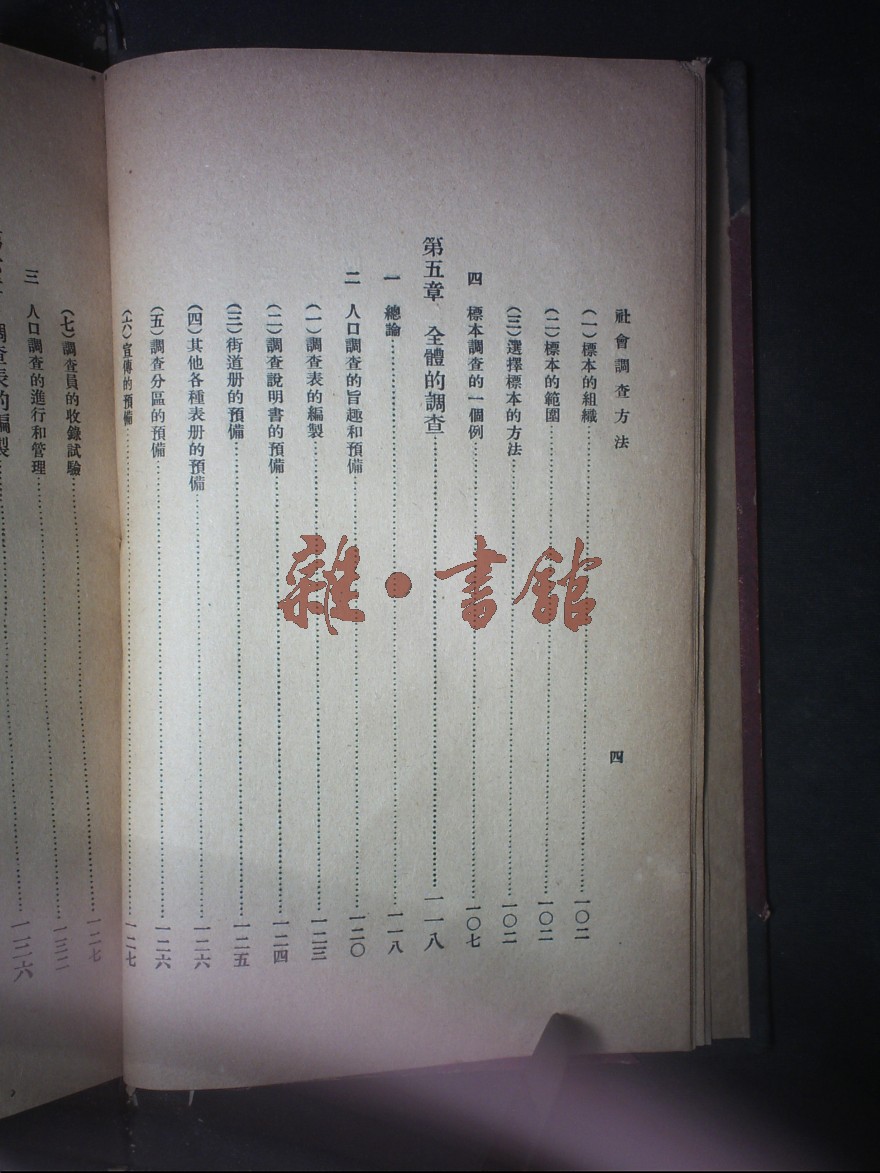 社會調查方法 四
(一)標本的組織……一〇二
(二)標本的範圍……一〇二
(三)選擇標本的方法……一〇二
四 標本調查的一個例……一〇七
第五章 全體的調查……一一八
一 總論……一一八
二 人口調查的旨趣和預備……一二〇
(一)調查表的編製……一二三
(二)調查說明書的預備……一二四
(三)街道册的預備……一二五
(四)其他各種表册的預備……一二六
(五)調查分區的預備……一二六
(六)宣傳的預備……一二七
(七)調查員的收錄試驗……一二七
三 人口調查的進行和管理……一三二
調查表的編製……一三六
雜·書館